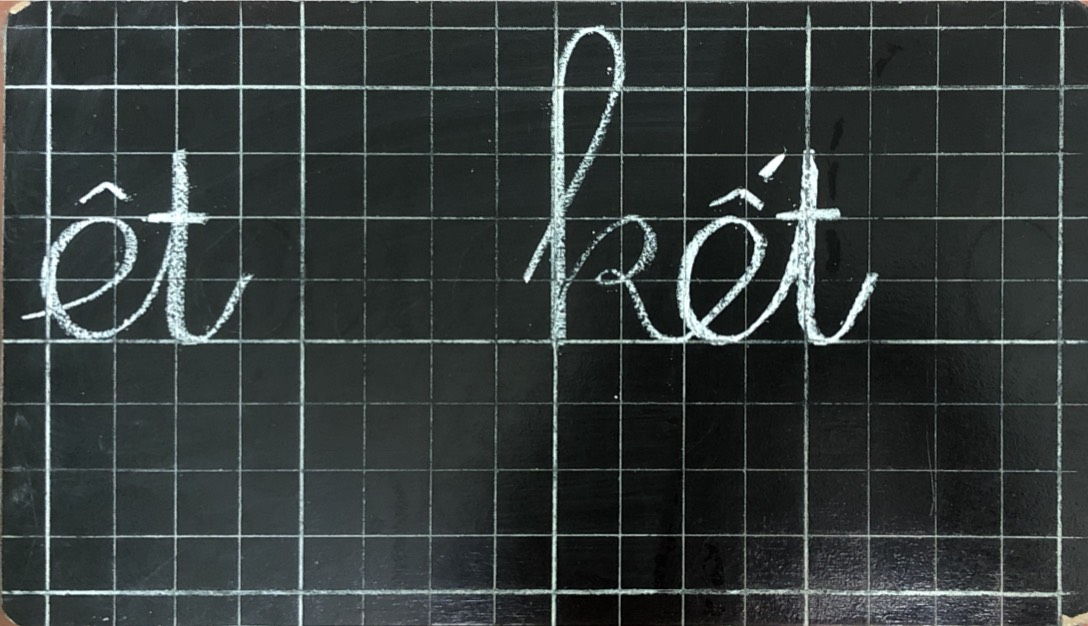 êt kết